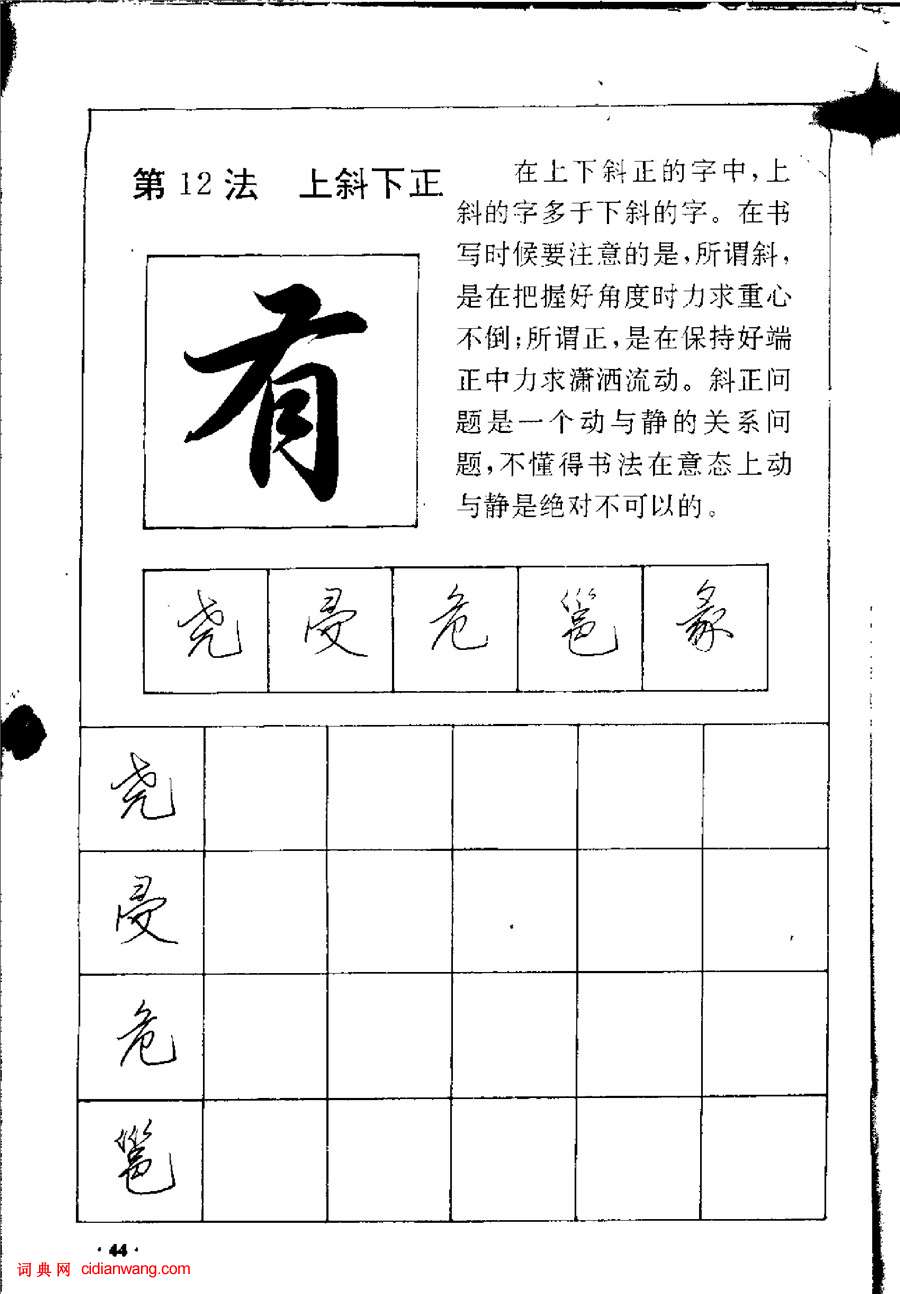 第12法 上斜下正
在上下斜正的字中，上
斜的字多于下斜的字。在书
写时候要注意的是，所谓斜，
是在把握好角度时力求重心
不倒；所谓正，是在保持好端
正中力求潇洒流动。斜正问
题是一个动与静的关系问
题，不懂得书法在意态上动
与静是绝对不可以的。
有
尧 曼 危 邕 彖
尧
曼
危
邕
·44·
词典网 cidianwang.com